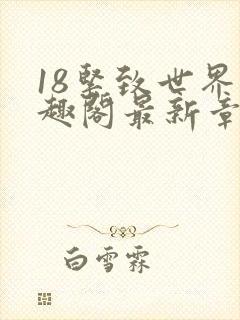 18坚致世界
趣阁最新章
白雪霖